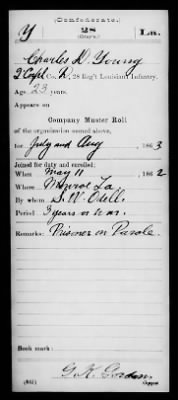 (Confederate.)
Y 28 La.
(Gray's.)
Charles D. Young
Co. , 28 Reg't Louisiana Infantry.
Age 23 years.
Appears on
Company Muster Roll
of the organization named above,
for July and Aug , 1863
Joined for duty and enrolled:
When May 11 , 1862
Where Monroe La.
By whom S. W. Odell.
Period 3 years or war.
Remarks: Prisoner on Parole.
Book mark:
G. K. Gordon
Copyist.